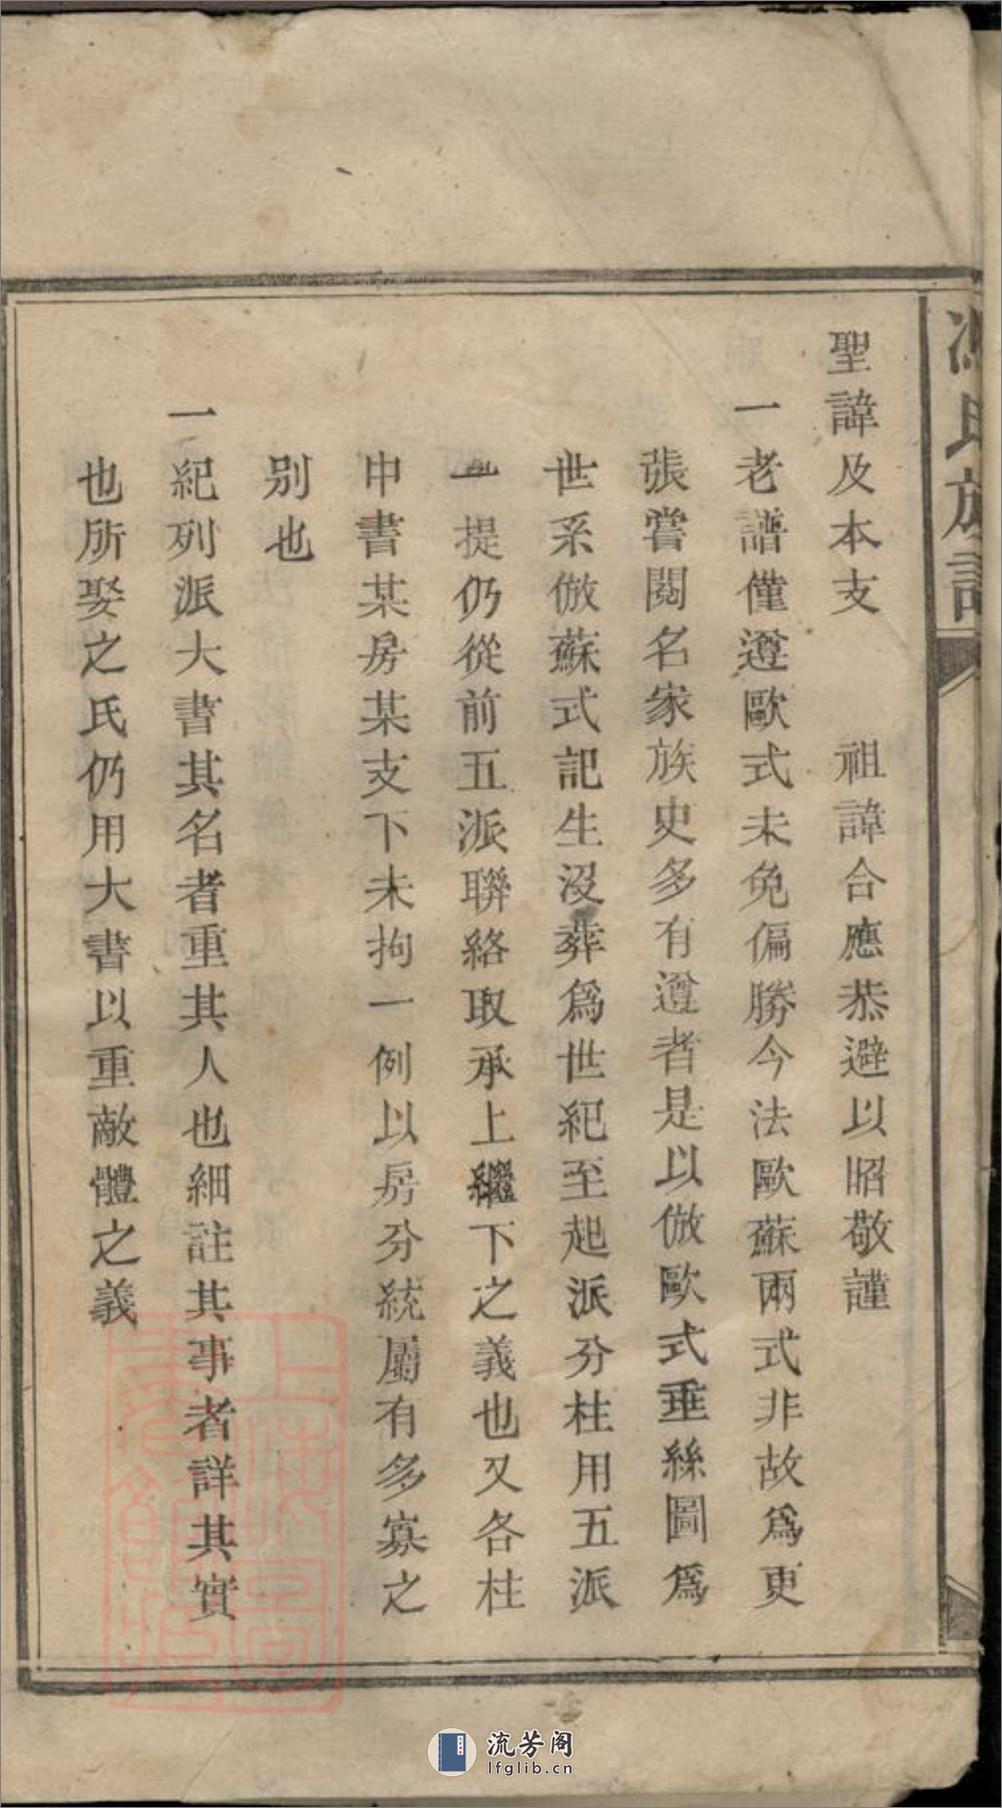 馮氏族譜
聖諱及本支　祖諱合應恭避以昭敬謹
一老譜僅遵歐式未免偏勝今法歐蘇兩式非故爲更
張嘗閱名家族史多有遵者是以倣歐式垂絲圖爲
世系倣蘇式記生沒葬爲世紀至起派分柱用五派
一提仍從前五派聯絡取承上繼下之義也又各柱
中書某房某支下未拘一例以房分統屬有多寡之
別也
一紀列派大書其名者重其人也細註其事者詳其實
也所娶之氏仍用大書以重敵體之義
上海圖書館藏
流芳阁
lfglib.cn